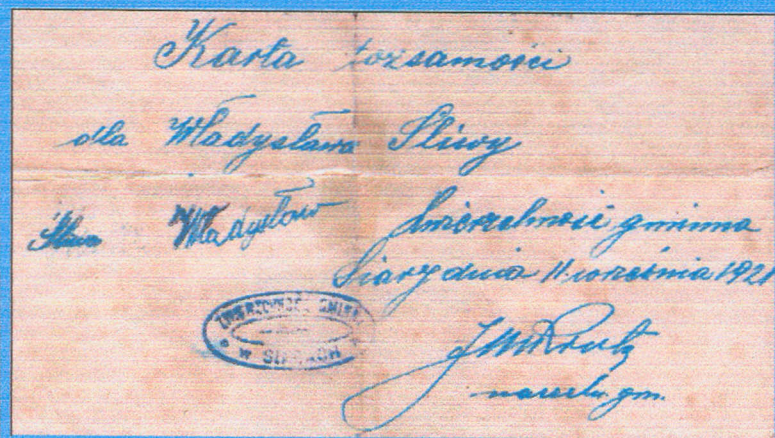 Karta tożsamości
dla Władysława Śliwy
Śliwa Władysław
Zwierzchność gminna
Siary dnia 11 września 1921
ZWIERZCHNOŚĆ GMINNA
W SIARACH
naczeln. gm.